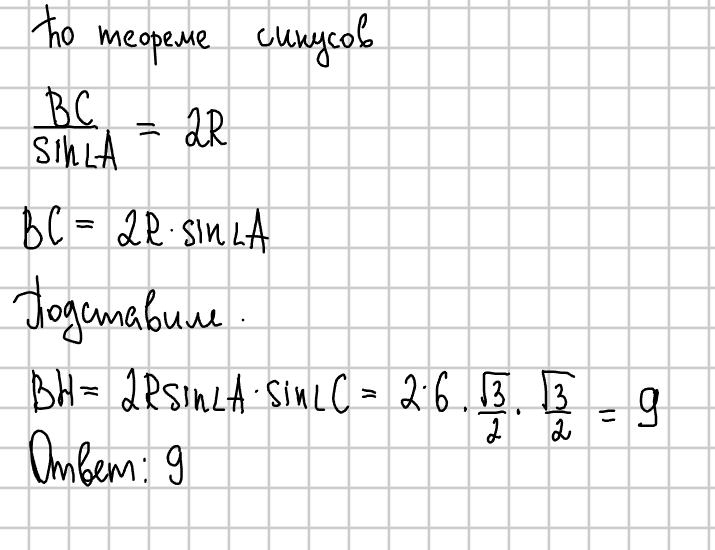 По теореме синусов
BC/sin∠A = 2R
BC = 2R · sin∠A
Подставим.
BH = 2R sin∠A · sin∠C = 2·6 · √3/2 · √3/2 = 9
Ответ: 9